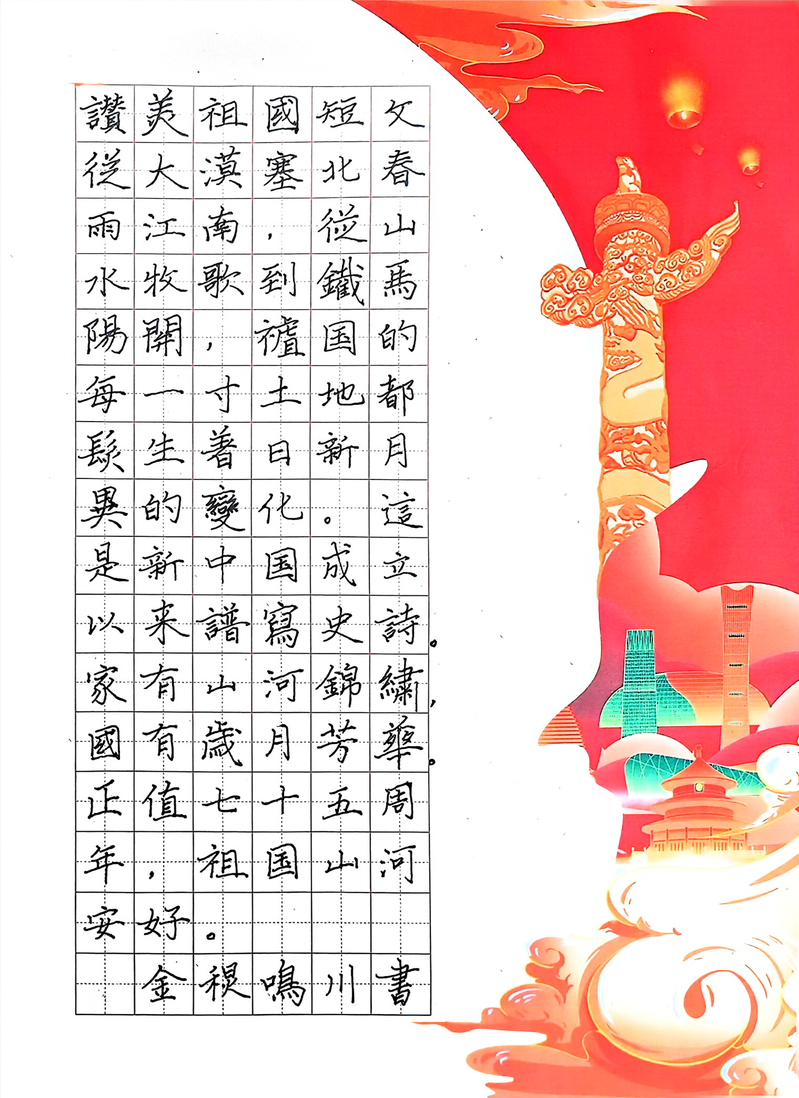 讚美祖國短文
從大漠塞北春
雨江南，從山
水牧歌到鐵馬
陽關，祖国的
每一寸土地都
發生著日新月
異的變化。這
是新中国成立
以来譜寫史詩。
家有山河錦繡，
國有歲月芳華。
正值七十五周
年，祖国山河
安好。
金稷鳴川書